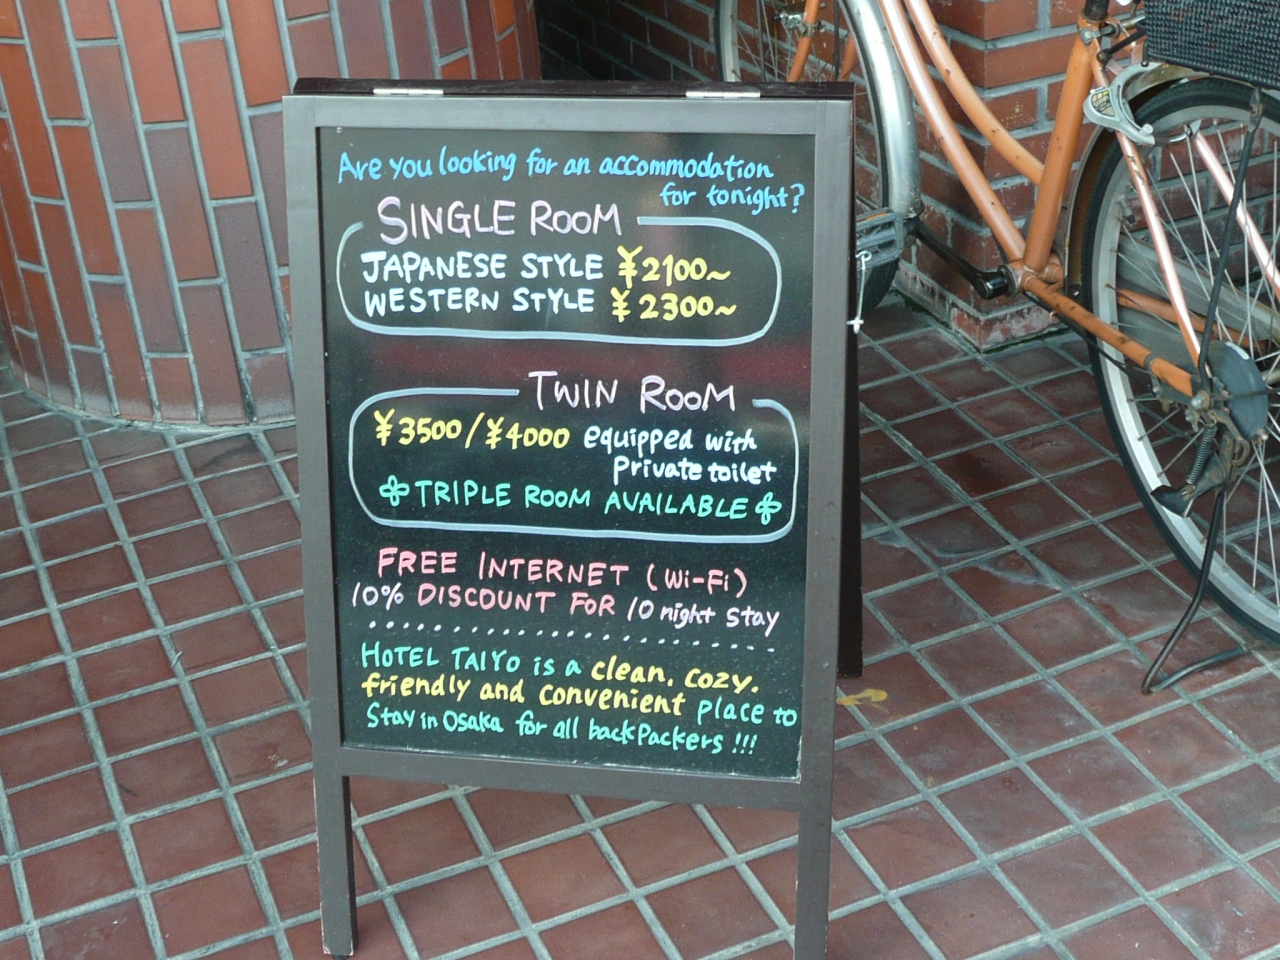 Are you looking for an accommodation
for tonight?
SINGLE ROOM
JAPANESE STYLE ¥2100~
WESTERN STYLE ¥2300~
TWIN ROOM
¥3500/¥4000 equipped with
Private toilet
TRIPLE ROOM AVAILABLE
FREE INTERNET (Wi-Fi)
10% DISCOUNT FOR 10 night stay
HOTEL TAIYO is a clean. cozy.
friendly and convenient place to
Stay in Osaka for all backpackers !!!